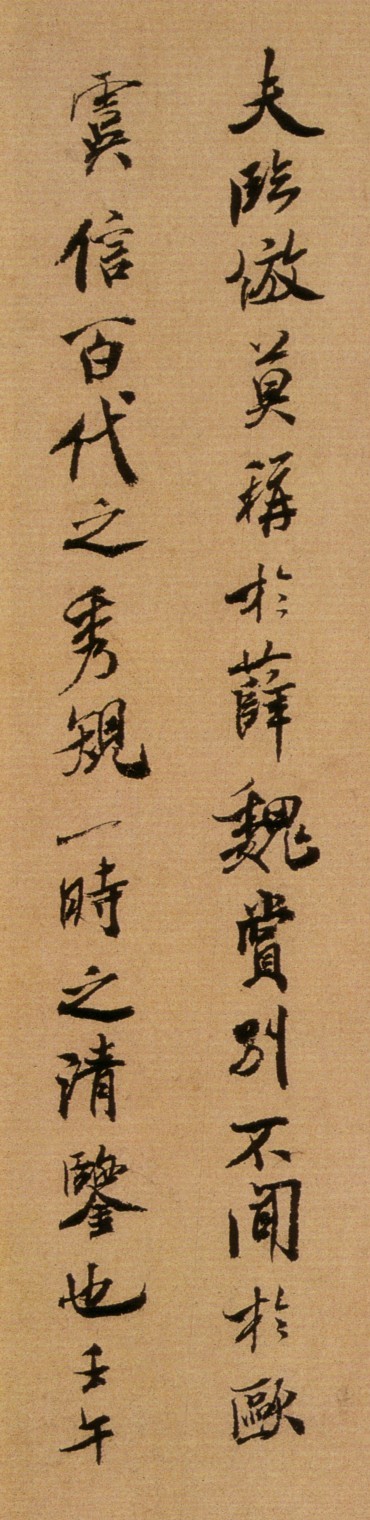 夫臨倣莫稱於薛魏賞別不聞於歐
虞信百代之秀規一時之清鑒也壬午